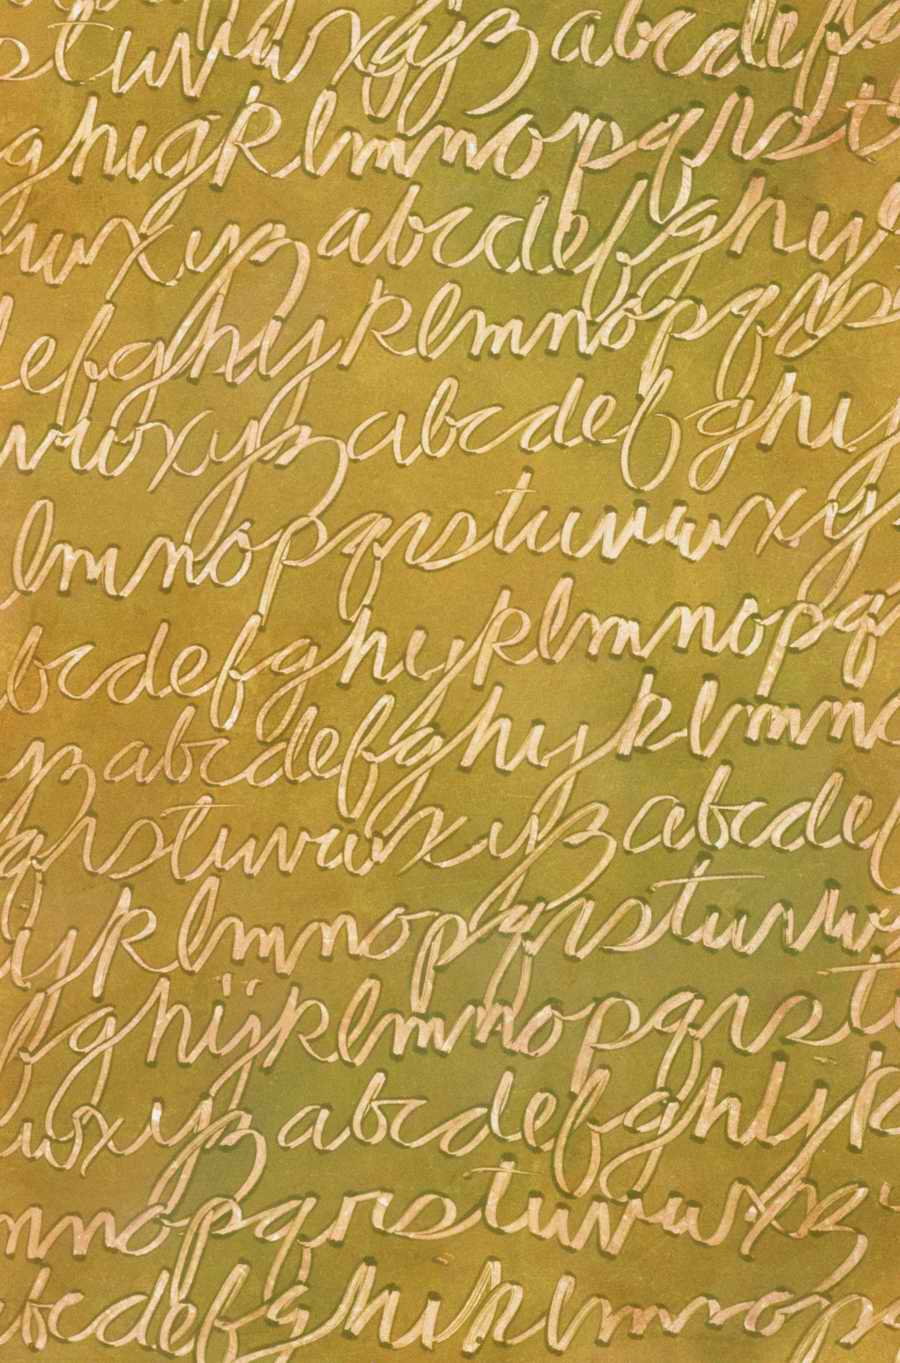 stuvwxyz abcdef
ghijklmnopqrst
uwxyz abcdefghij
efghijklmnopqrs
vwxyz abcdefghi
lmnopqrstuvwxy
bcdefghijklmnopq
z abcdefghijklmno
qrstuvwxyz abcde
ijklmnopqrstuvw
fghijklmnopqrst
uvxyz abcdefghijk
mnopqrstuvwxz
bcdefghiklmnop